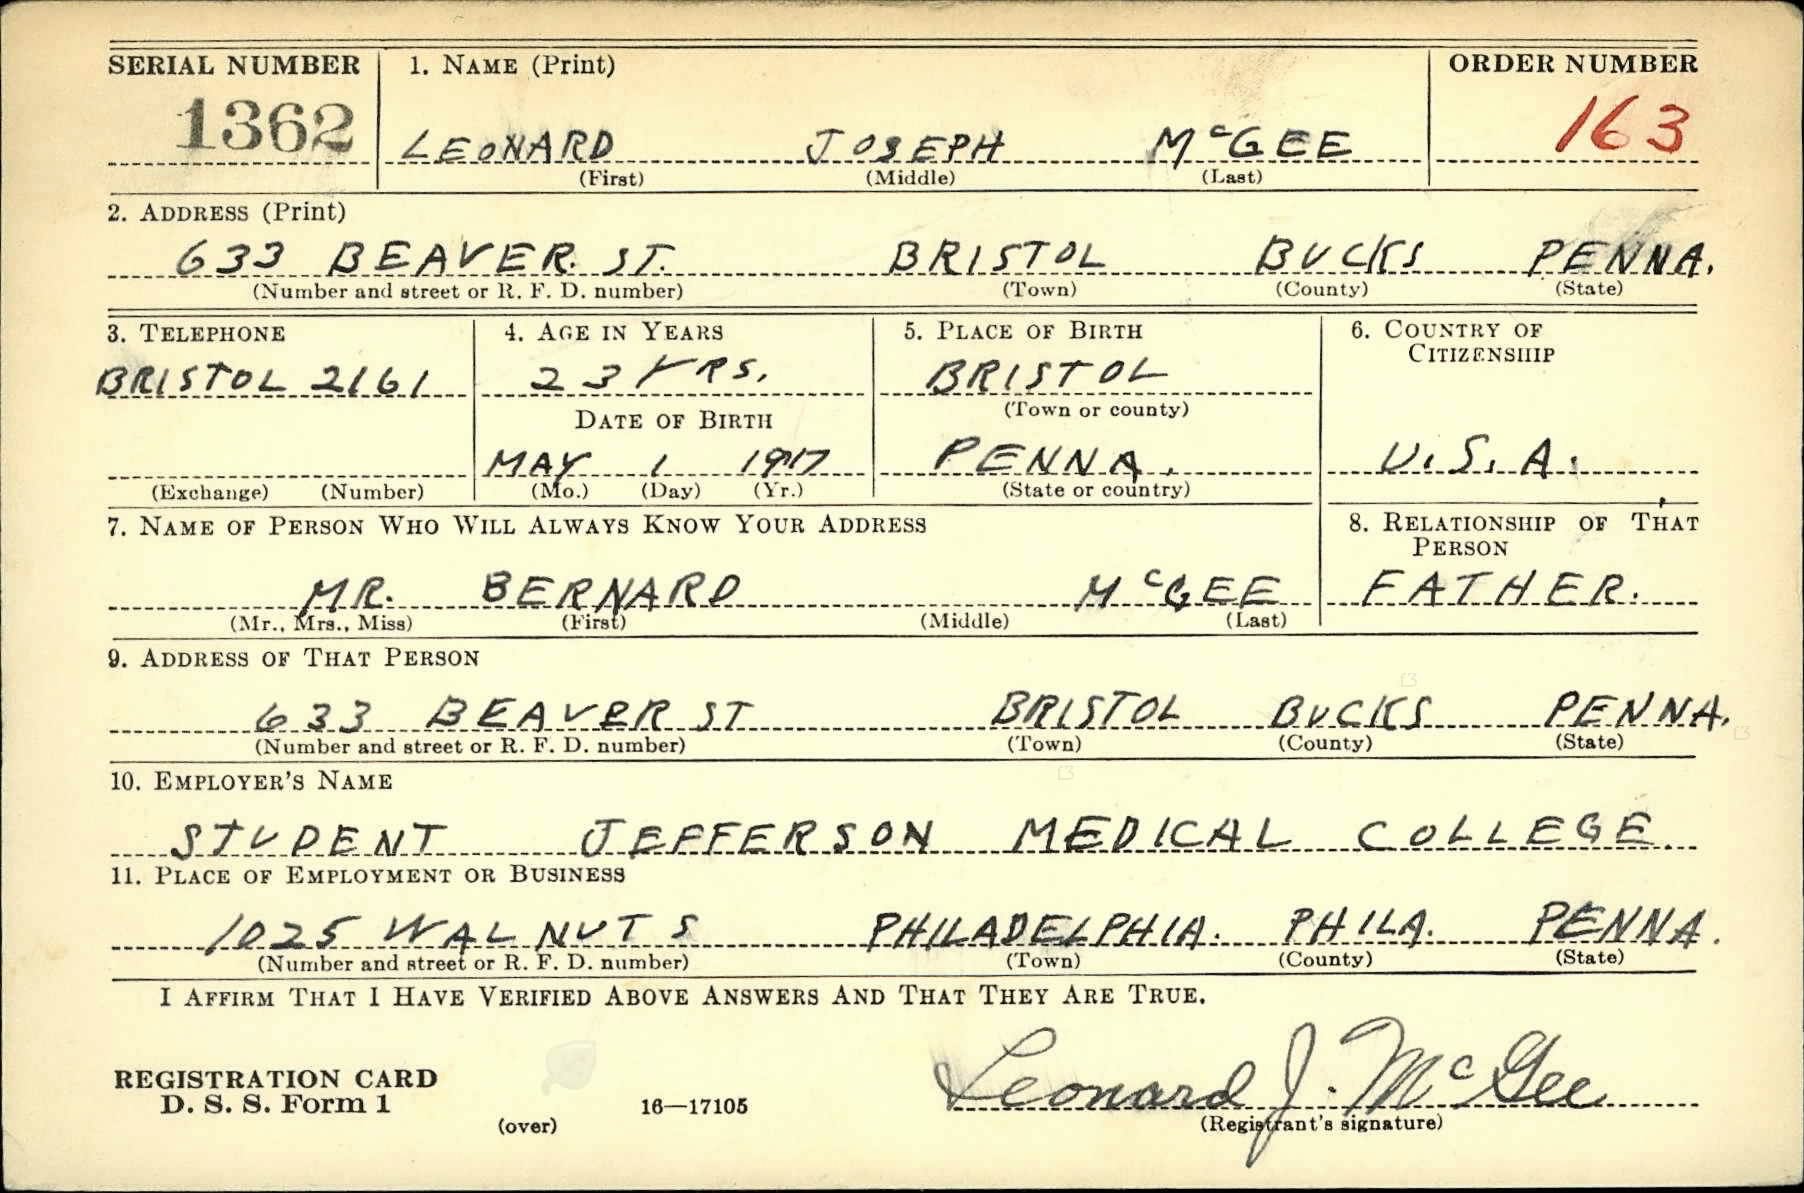 SERIAL NUMBER 1. NAME (Print) ORDER NUMBER
1362 LEONARD JOSEPH McGEE 163
(First) (Middle) (Last)
2. ADDRESS (Print)
633 BEAVER. ST. BRISTOL BUCKS PENNA.
(Number and street or R. F. D. number) (Town) (County) (State)
3. TELEPHONE 4. AGE IN YEARS 5. PLACE OF BIRTH 6. COUNTRY OF
CITIZENSHIP
BRISTOL 2161 23 YRS. BRISTOL
DATE OF BIRTH (Town or county)
MAY 1 1917 PENNA. U.S.A.
(Exchange) (Number) (Mo.) (Day) (Yr.) (State or country)
7. NAME OF PERSON WHO WILL ALWAYS KNOW YOUR ADDRESS 8. RELATIONSHIP OF THAT
PERSON
MR. BERNARD McGEE FATHER.
(Mr., Mrs., Miss) (First) (Middle) (Last)
9. ADDRESS OF THAT PERSON
633 BEAVER ST BRISTOL BUCKS PENNA.
(Number and street or R. F. D. number) (Town) (County) (State)
10. EMPLOYER'S NAME
STUDENT JEFFERSON MEDICAL COLLEGE.
11. PLACE OF EMPLOYMENT OR BUSINESS
1025 WALNUT S PHILADELPHIA. PHILA. PENNA.
(Number and street or R. F. D. number) (Town) (County) (State)
I AFFIRM THAT I HAVE VERIFIED ABOVE ANSWERS AND THAT THEY ARE TRUE.
Leonard J. McGee
REGISTRATION CARD
D. S. S. Form 1 16—17105
(over) (Registrant's signature)